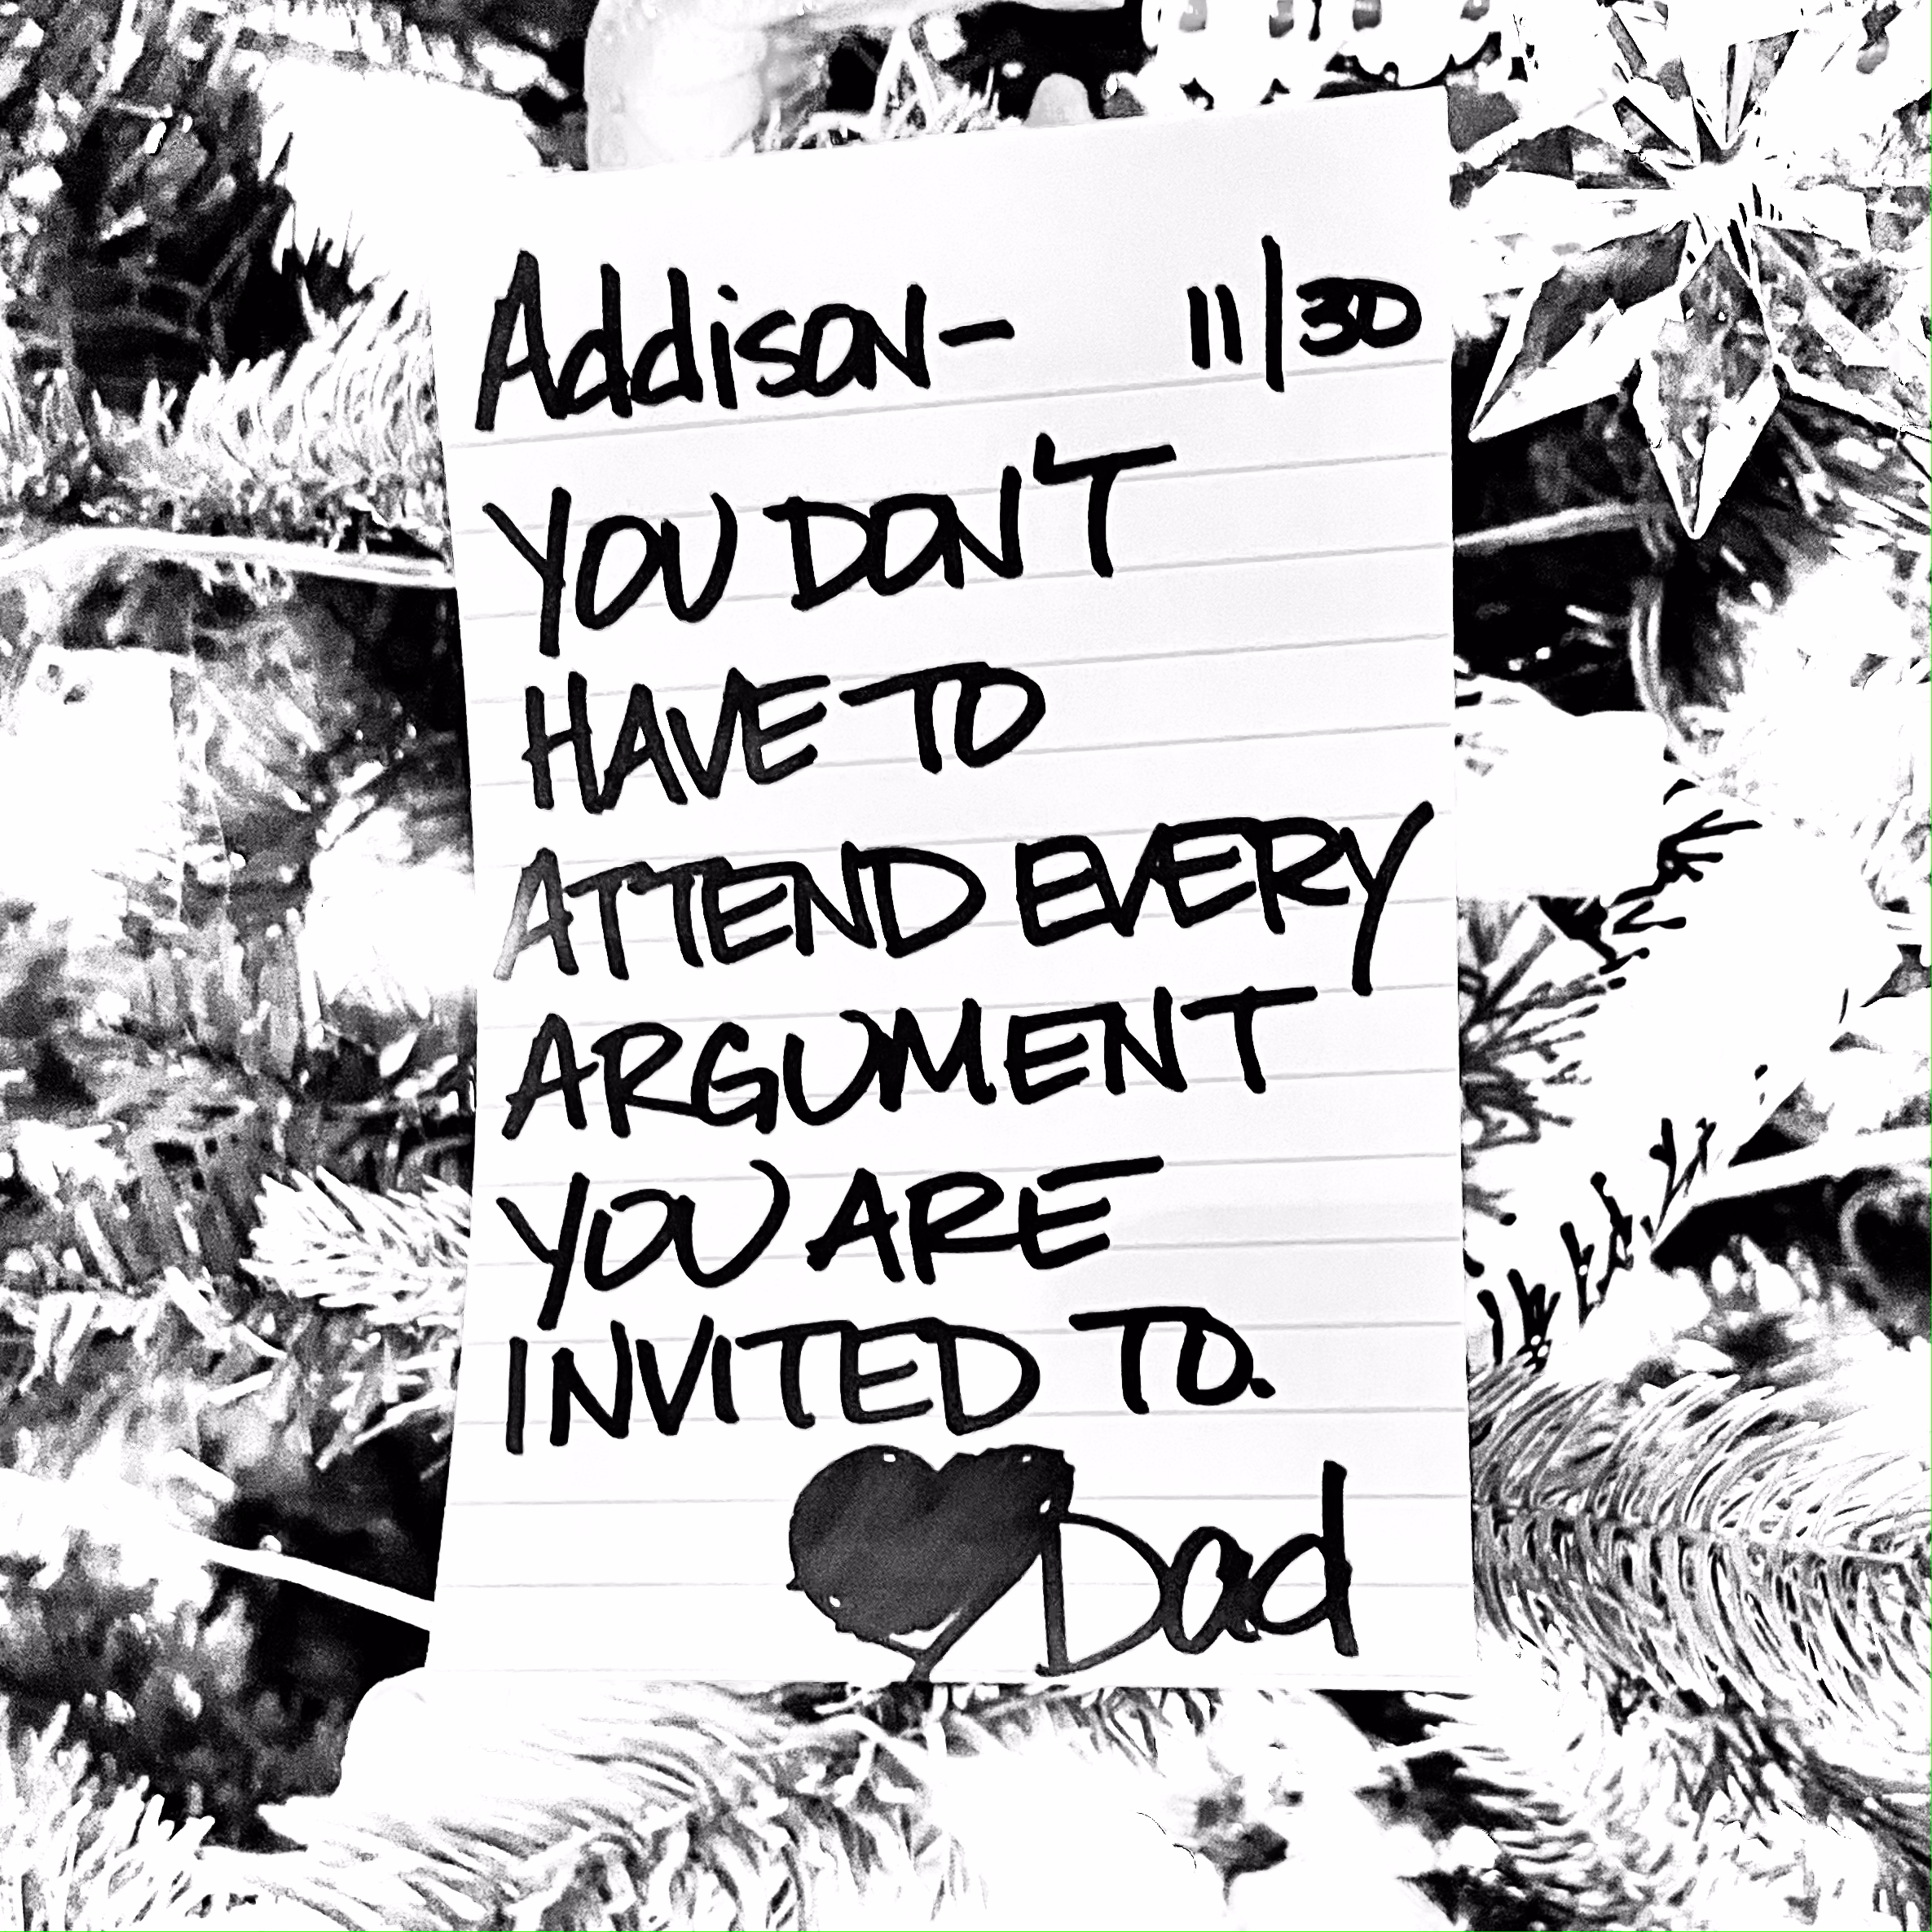 Addison- 11/30
YOU DON'T
HAVE TO
ATTEND EVERY
ARGUMENT
YOU ARE
INVITED TO.
Dad